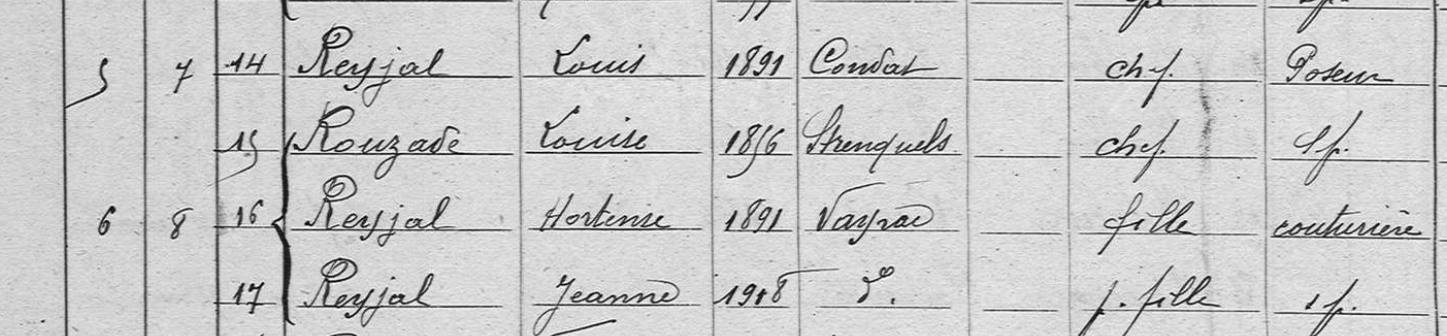 5 7 14 Reyjal Louis 1891 Condat chef. Poseur
15 Rouzade Louise 1856 Strenquels chef. Sp.
6 8 16 Reyjal Hortense 1891 Vayrac fille couturière
17 Reyjal Jeanne 1918 d. p. fille sp.